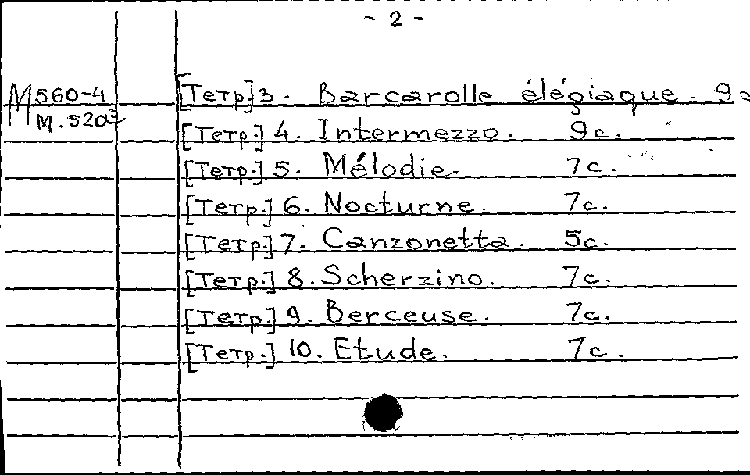 - 2 -
M 560-4 [Тетр.] 3. Barcarolle élégiaque. 9с
М.520²
[Тетр.] 4. Intermezzo. 9с.
[Тетр.] 5. Mélodie. 7с.
[Тетр.] 6. Nocturne. 7с.
[Тетр.] 7. Canzonetta. 5с.
[Тетр.] 8. Scherzino. 7с.
[Тетр.] 9. Berceuse. 7с.
[Тетр.] 10. Etude. 7с.